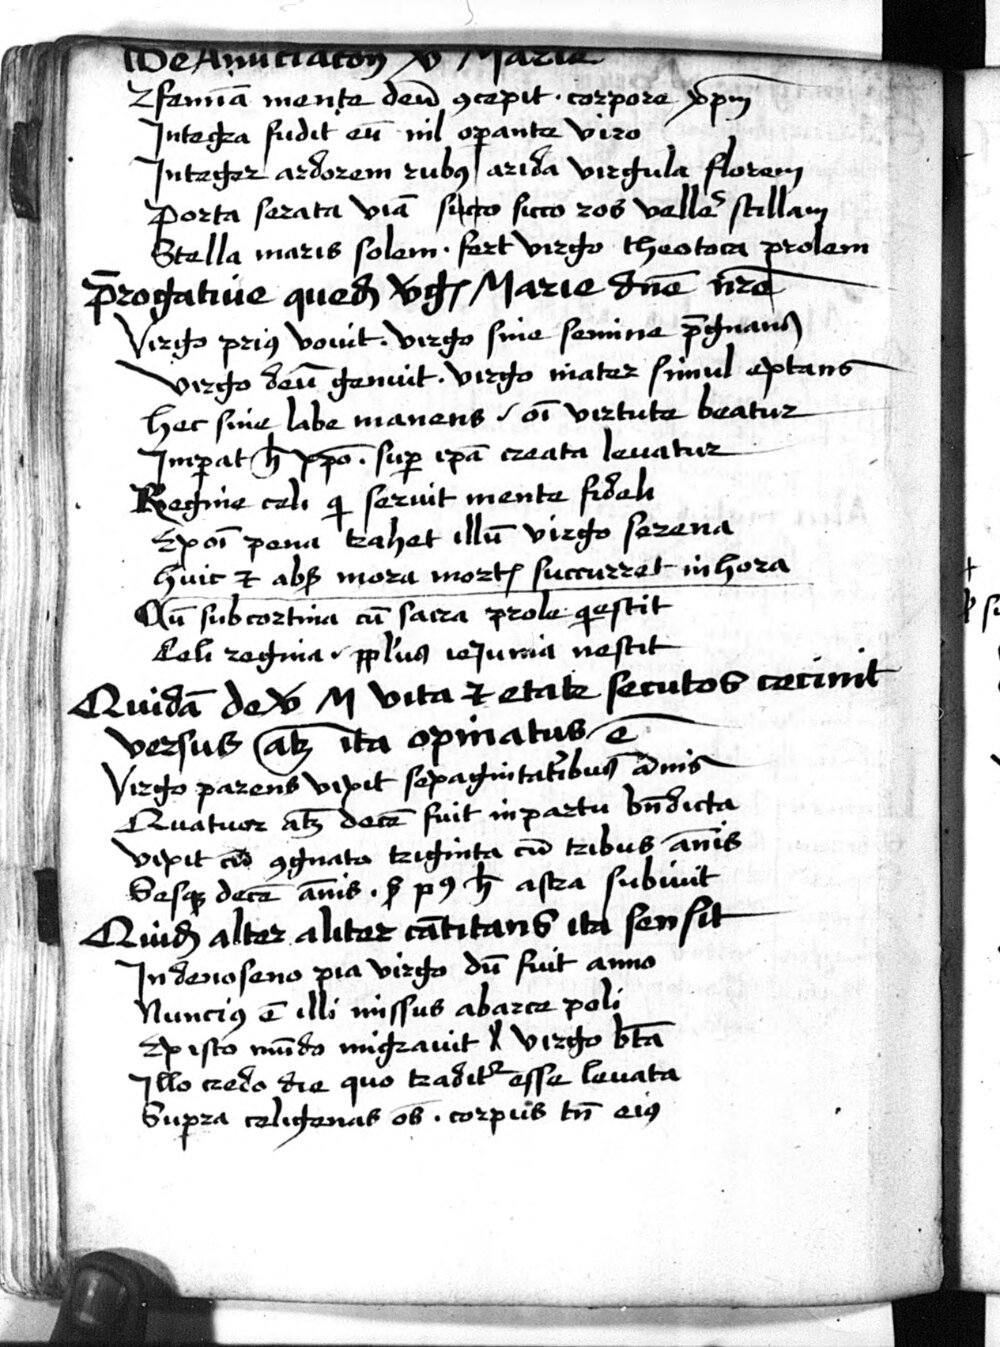 De Anu(n)ciatōn xv Marie
Integra fudit eū nil operante viro
Integer ardorem rubꝰ arida virgula florem
Porta serata viā sicco ros velleꝰ stillam
Stella maris solem · fert virgo theotoca prolem
P̄rogatiue quedā Vgīs Marie dn̄e nr̄e
Virgo priꝰ vouit · virgo sine semine p̄gnans
virgo deū genuit · virgo mater simul extans
hec sine labe manens / oī virtute beatur
Imꝑat h xp̄o · suꝑ ip̄ā creata leuatur
Regine celi qi seruit mente fideli
Ex oī pena trahet illū virgo serena
huic et absqꝫ mora mortꝭ succurret in hora
Cū sub cortina cū sacra prole qͥestit
Celi regina / pplūs ieiunia nestit
Quidā de v M vita et etate secutos cecinit
versus atqꝫ ita opinatus ē
Virgo parens vixit sexagintatͥbus ānis
Quatuor atqꝫ decē fuit in partu bn̄dicta
vixit cū ꝯgnato triginta cū tribus ānis
Sesqꝫ decē ānis · pꝰ h astra subiuit
Quidā alter aliter cātitans ita sensit
In deno seno pia virgo dū fuit anno
Nunciꝰ ē illi missus ab arce poli
Ex isto mūdo migrauit virgo btā
Illo credo die quo traditᷣ esse leuata
Supra celigenas os̄ · corpus tn̄ eiꝰ